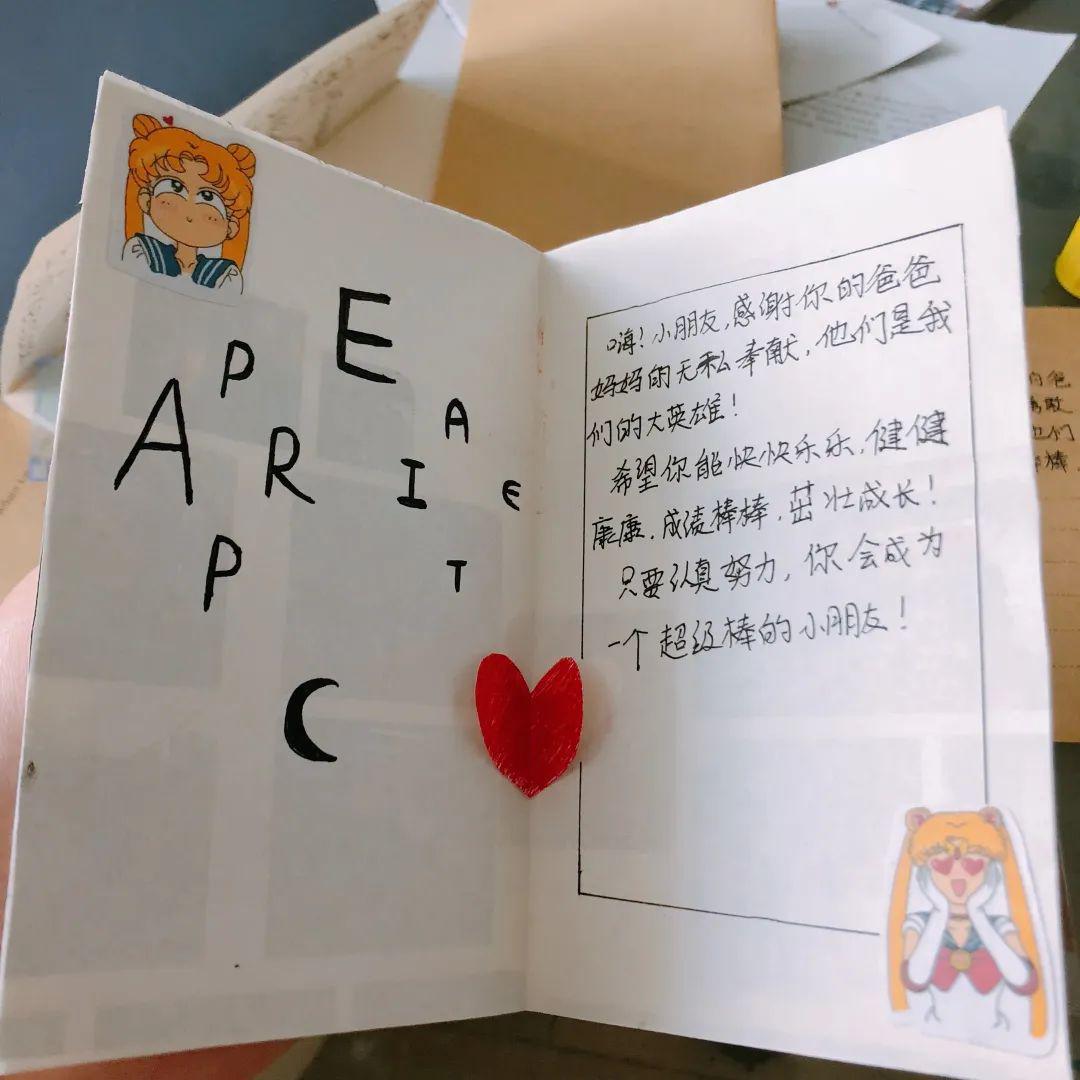 E
P A
A R I E
P T
C
嗨！小朋友，感谢你的爸爸
妈妈的无私奉献，他们是我
们的大英雄！
希望你能快快乐乐，健健
康康，成绩棒棒，茁壮成长！
只要认真努力，你会成为
一个超级棒的小朋友！